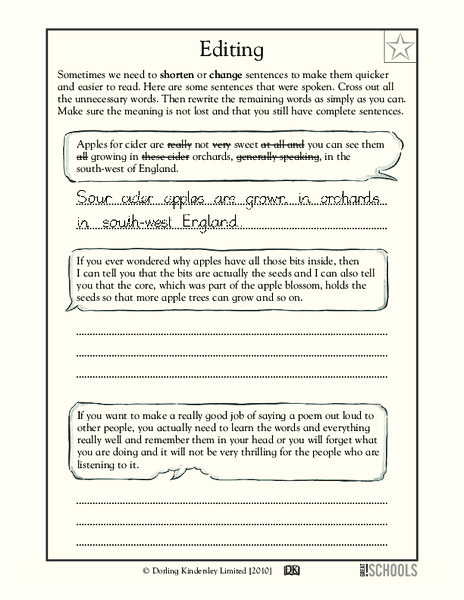 Editing
Sometimes we need to shorten or change sentences to make them quicker
and easier to read. Here are some sentences that were spoken. Cross out all
the unnecessary words. Then rewrite the remaining words as simply as you can.
Make sure the meaning is not lost and that you still have complete sentences.
Apples for cider are really not very sweet at all and you can see them
all growing in these cider orchards, generally speaking, in the
south-west of England.
Sour cider apples are grown in orchards
in south-west England.
If you ever wondered why apples have all those bits inside, then
I can tell you that the bits are actually the seeds and I can also tell
you that the core, which was part of the apple blossom, holds the
seeds so that more apple trees can grow and so on.
If you want to make a really good job of saying a poem out loud to
other people, you actually need to learn the words and everything
really well and remember them in your head or you will forget what
you are doing and it will not be very thrilling for the people who are
listening to it.
© Dorling Kindersley Limited [2010] DK GREAT!SCHOOLS